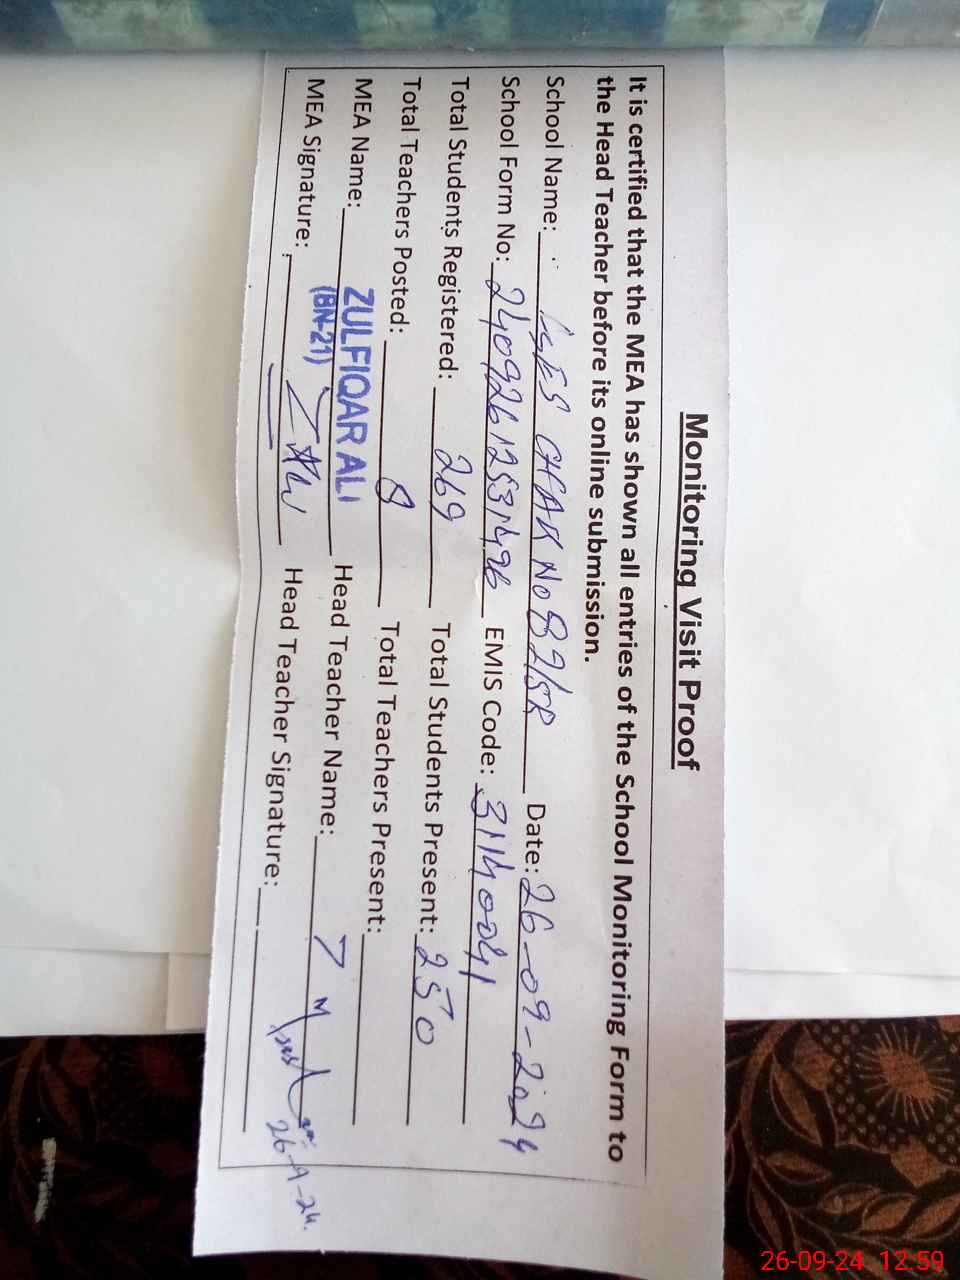 Monitoring Visit Proof
It is certified that the MEA has shown all entries of the School Monitoring Form to
the Head Teacher before its online submission.
School Name: GES CHAK No 82/5R Date: 26-09-2024
School Form No: 24092612531496 EMIS Code: 31140041
Total Students Registered: 269 Total Students Present: 250
Total Teachers Posted: 8 Total Teachers Present: 7
MEA Name: ZULFIQAR ALI Head Teacher Name: M
(BN-21)
MEA Signature: Head Teacher Signature:
26-9-24.
26-09-24 12:59